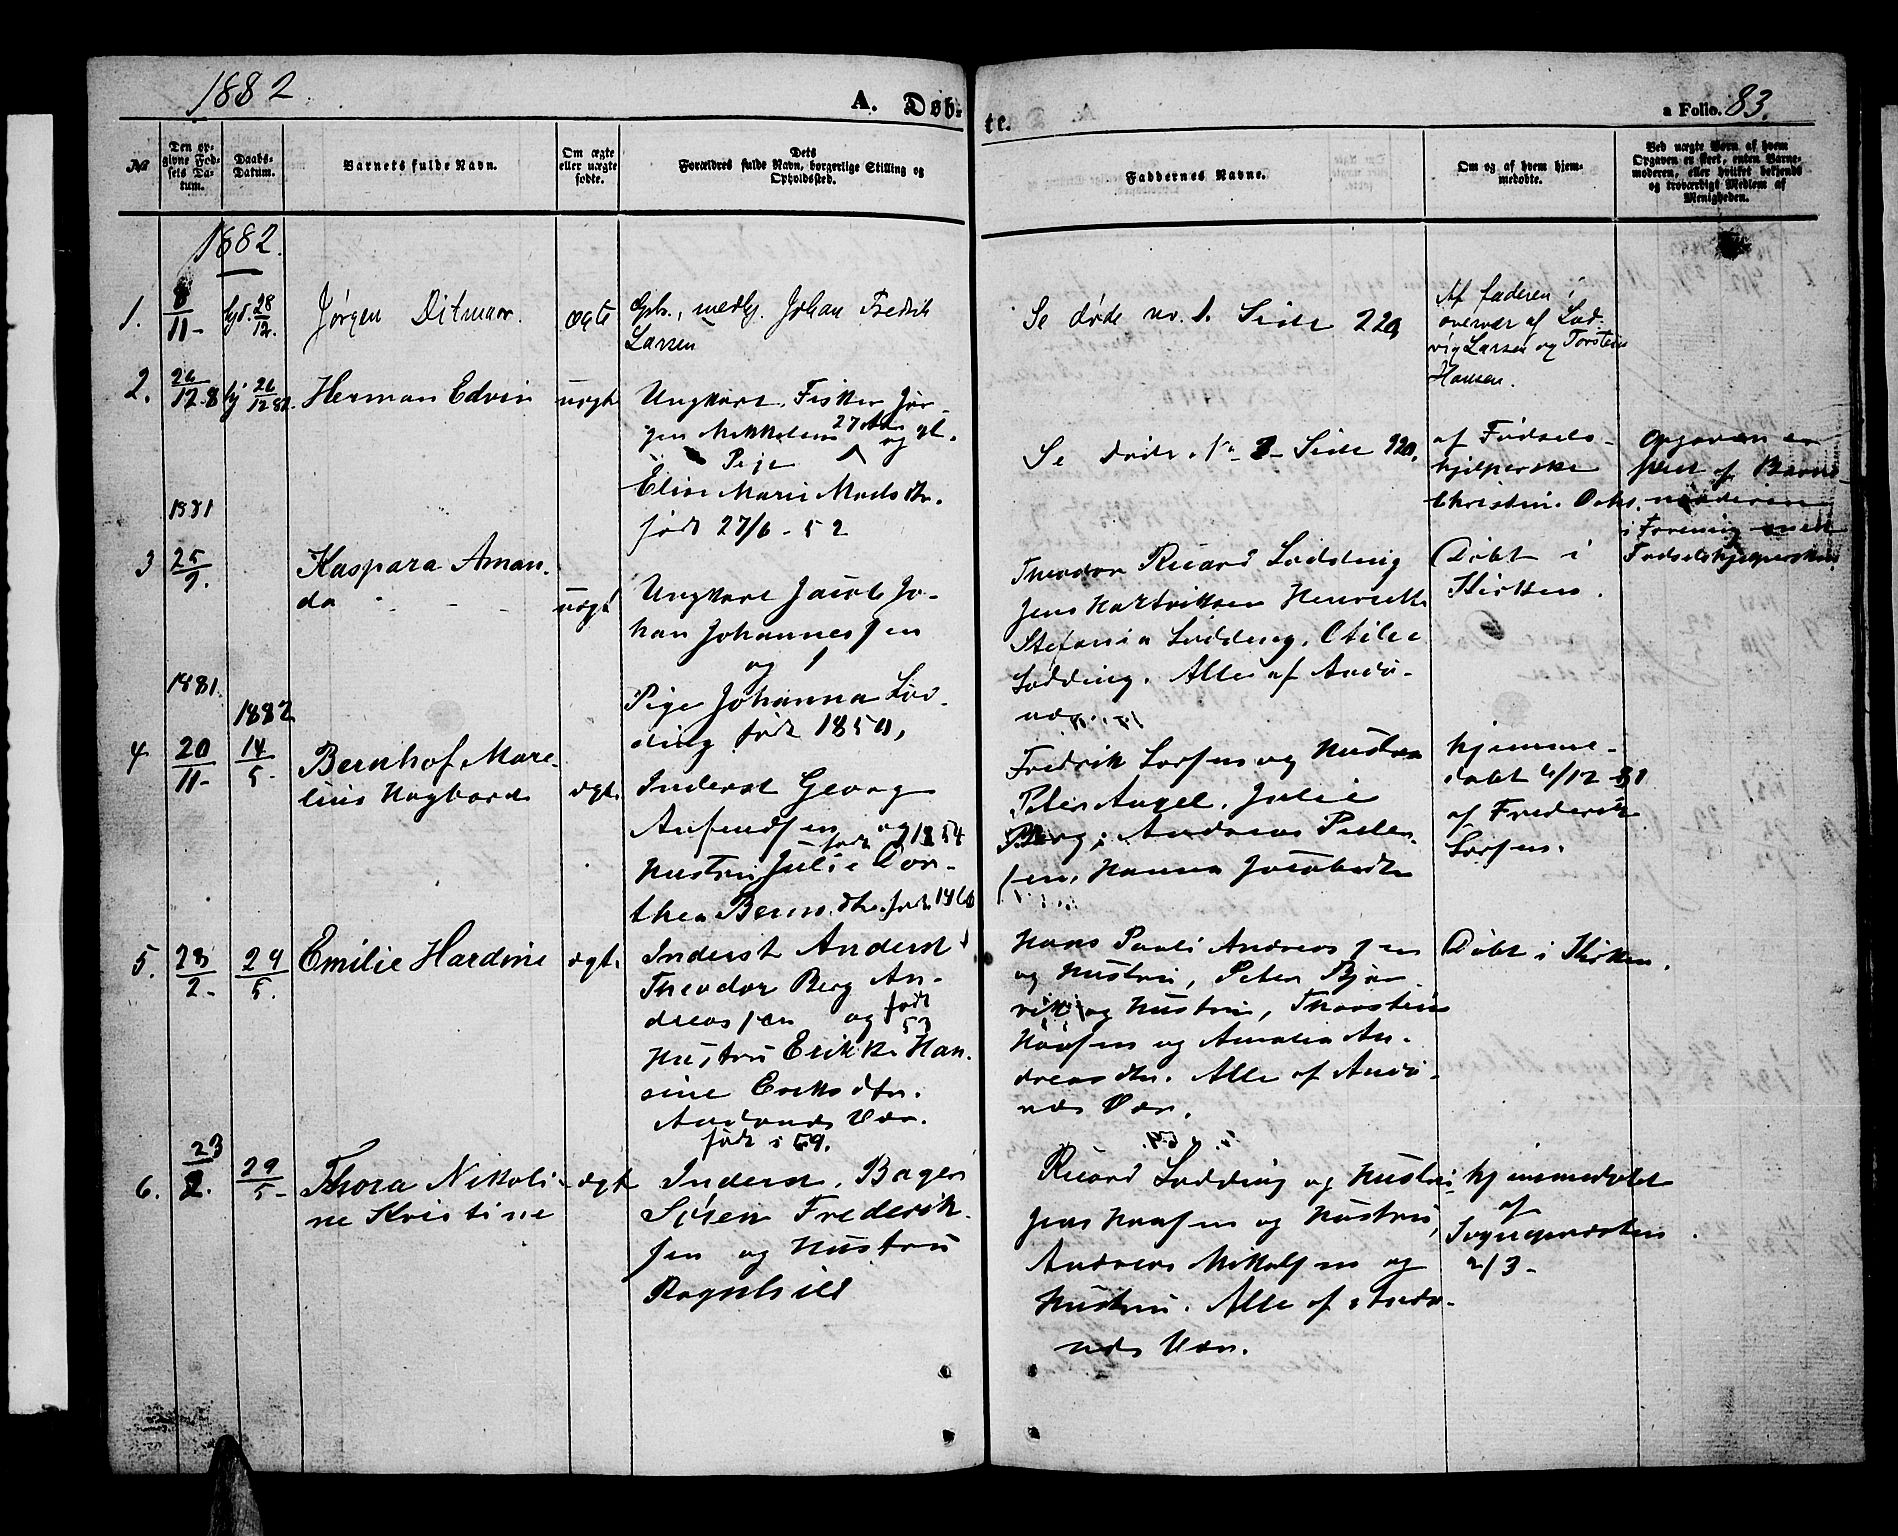 1882
A. Døb-
te.
a Folio. 83.
№
Den op-
givne Fød-
sels Da-
tum.
Daabs-
Datum.
Barnets fulde Navn.
Om ægte
eller uægte
fødte.
Dets
Forældres fulde Navn, borgerlige Stilling og
Opholdssted.
Faddernes Navne.
Om og af hvem hjem-
medøbte.
Ved uægte Børn af hvem
Opgaven er skeet, enten Barne-
moderen, eller hvilket bekjendt
og troværdigt Medlem af
Menigheden.
1882.
1. 8/11- hjd. 28/12. Jørgen Ditmar. ægte
Gbr., medhj. Johan Fredrik
Larsen
Se døde no. 1. Side 220
Af faderen i
overvær af Lud-
vig Larsen og Torstein
Hansen.
2. 26/12-8 hj 26/12 82. Herman Edvin uægt
Ungkarl. Fisker Jør-
gen Mikkelsen 27 Aar og gl.
Pige
Elise Marie Madsdtr.
født 27/6-52
Se døde. No 2- Side 120.
af Fødsels-
hjelperske
Christine
Opgaven er
skeet af Barne-
moderen
i Forening med
Fødselshjelpersken
1881
3 25/9. Kaspara Aman-
da uægt
Ungkarl Jacob Jo-
han Johannessen
og
Pige Johanna Lød-
ding født 1850,
Theodor Ricard Lødding
Jens Hartviksen Henrikke
Stefania Lødding, Otilie
Lødding. Alle af Andø-
Døbt i
Kirken.
1881.
1882
4 20/11- 14/5- Bernhof Mare-
lius Hagbard ægt.
Inderst Georg
Arnfindsen og født 1854
Hustru Julie Dor-
thea Bernsdtr. født 1860
Fredrik Larsen og Hustru
Peter Angel. Julie
Berg, Andreas Peder-
sen, Hanna Jacobsdtr
hjemme-
døbt 4/12-81
af Frederik
Larsen.
5. 23/2- 29/5. Emilie Hardine ægt.
Inderst Anderst
Theodor Berg An-
dreassen og født 53
Hustru Erikke Han-
sine Eriksdtr.
Andenes Vær.
født i 59.
Hans Pauli Andreassen
og Hustru, Peter Bjør-
vik og Hustru, Thorstein
Hansen og Amalia An-
dreasdtr. Alle af Andø-
næs Vær.
Døbt i Kirken.
6. 23/2. 29/5- Thora Nikoli-
ne Kristine ægt
Inderst, Bager
Søren Frederik-
sen og Hustru
Ragnhild
Ricard Lødding og Hustru
Jens Hansen og Hustru,
Andreas Nikolsen og
Hustru. Alle af Andø-
næs Vær.
hjemmedøbt
af
Sognepresten
2/3-